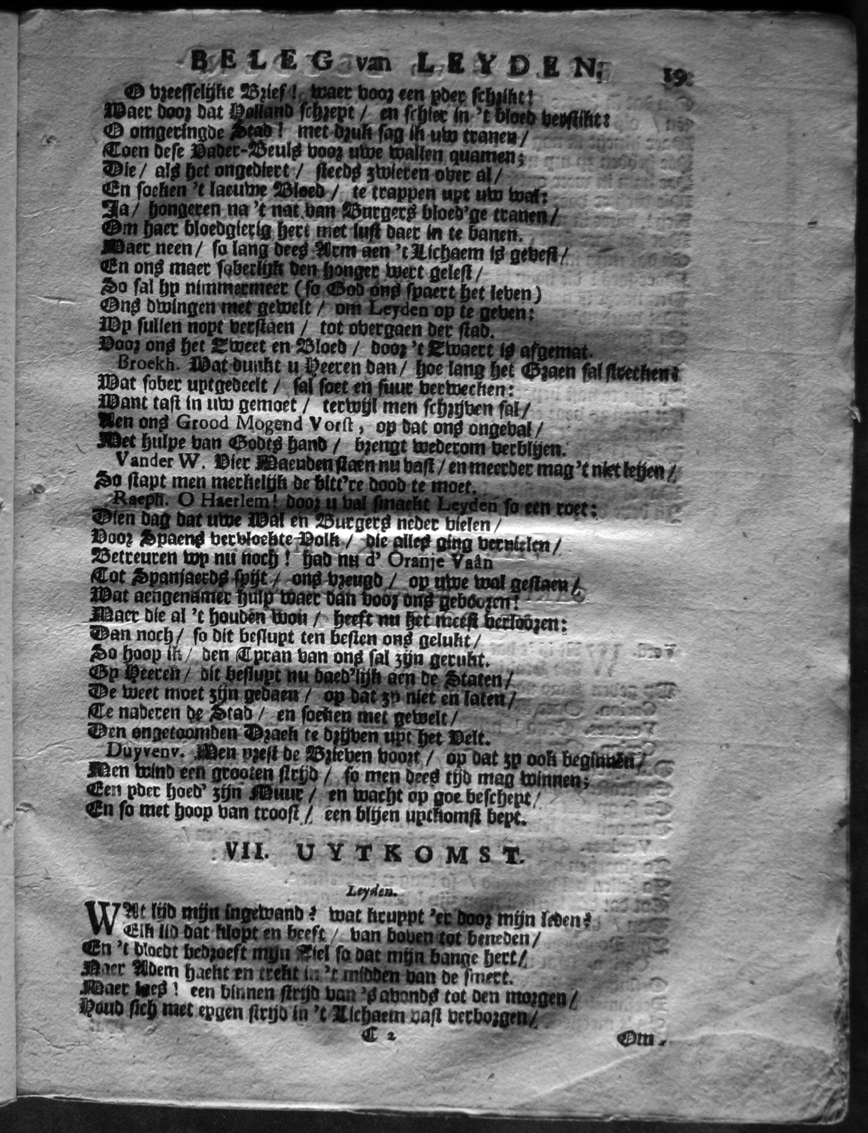 BELEG van LEYDEN. 19
O vreesselijke Brief! waer voor een yder schrikt!
Waer door dat Holland schrept / en schier in 't bloed verstikt?
O omgeringde Stad! met druk sag ik uw tranen /
Toen dese Vader-Beuls voor uwe wallen quamen;
Die / als het ongediert / steeds zwieren over al /
En soeken 't laeuwe Bloed / te trappen upt uw wal:
Ja / hongeren na 't nat van Burgers bloed'ge tranen /
Om haer bloedgierig hert met lust daer in te banen.
Maer neen / so lang dees Arm aen 't Lichaem is gevest /
En ons maer soberlijk den honger wert gelest /
So sal hy nimmermeer (so God ons spaert het leven)
Ons dwingen met gewelt / om Leyden op te geven:
Wy sullen noyt verstaen / tot overgaen der stad.
Voor ons het Zweet en Bloed / door 't Zwaert is afgemat.
Broekh. Wat dunkt u Heeren dan / hoe lang het Graen sal strecken?
Wat sober uytgedeelt / sal soet en suur verwecken:
Want tast in uw gemoet / terwijl men schrijven sal /
Aen ons Grood Mogend Vorst, op dat ons ongeval /
Met hulpe van Godts hand / brengt wederom verblijen.
Vander W. Vier Maenden staen nu vast / en meerder mag 't niet leijen /
So stapt men merkelijk de bitt're dood te moet.
Raeph. O Haerlem! door u val smackt Leyden so een roet:
Dien dag dat uwe Wal en Burgers neder vielen /
Voor Spaens vervloekte Volk / die alles ging vernielen /
Betreuren wy nu noch! had nu d' Oranje Vaan
Tot Spanjaerds spijt / ons vreugd / op uwe wal gestaen /
Wat aengenamer hulp waer dan voor ons geboozen!
Maer die al 't houden wou / heeft nu het meest verloozen:
Dan noch / so dit besluyt ten besten ons gelukt /
So hoop ik / den Tyran van ons sal zijn gerukt.
Gy Heeren / dit besluyt nu daed'lijk aen de Staten /
De weet moet zijn gedaen / op dat zy niet en laten /
Te naderen de Stad / en soeken met gewelt /
Den ongetoomden Draek te drijven uyt het Velt.
Duyvenv. Men prest de Brieven voort / op dat zy ook beginnen /
Men wind een grooten strijd / so men dees tijd mag winnen;
Een yder hoed' zijn Muur / en wacht op goe bescheyt /
En so met hoop van troost / een blijen uytkomst beyt.
VII. UYTKOMST.
Leyden.
WAt lijd mijn ingewand? wat kruypt 'er door mijn leden?
Elk lid dat klopt en beeft / van boven tot beneden /
En 't bloedt bedroeft mijn Ziel so dat mijn bange hert /
Naer Adem haekt en trekt in 't midden van de smert.
Maer lees! een binnen strijd van 's avonds tot den morgen /
Houd sich met eygen strijd in 't Lichaem vast verborgen /
C 2 Om